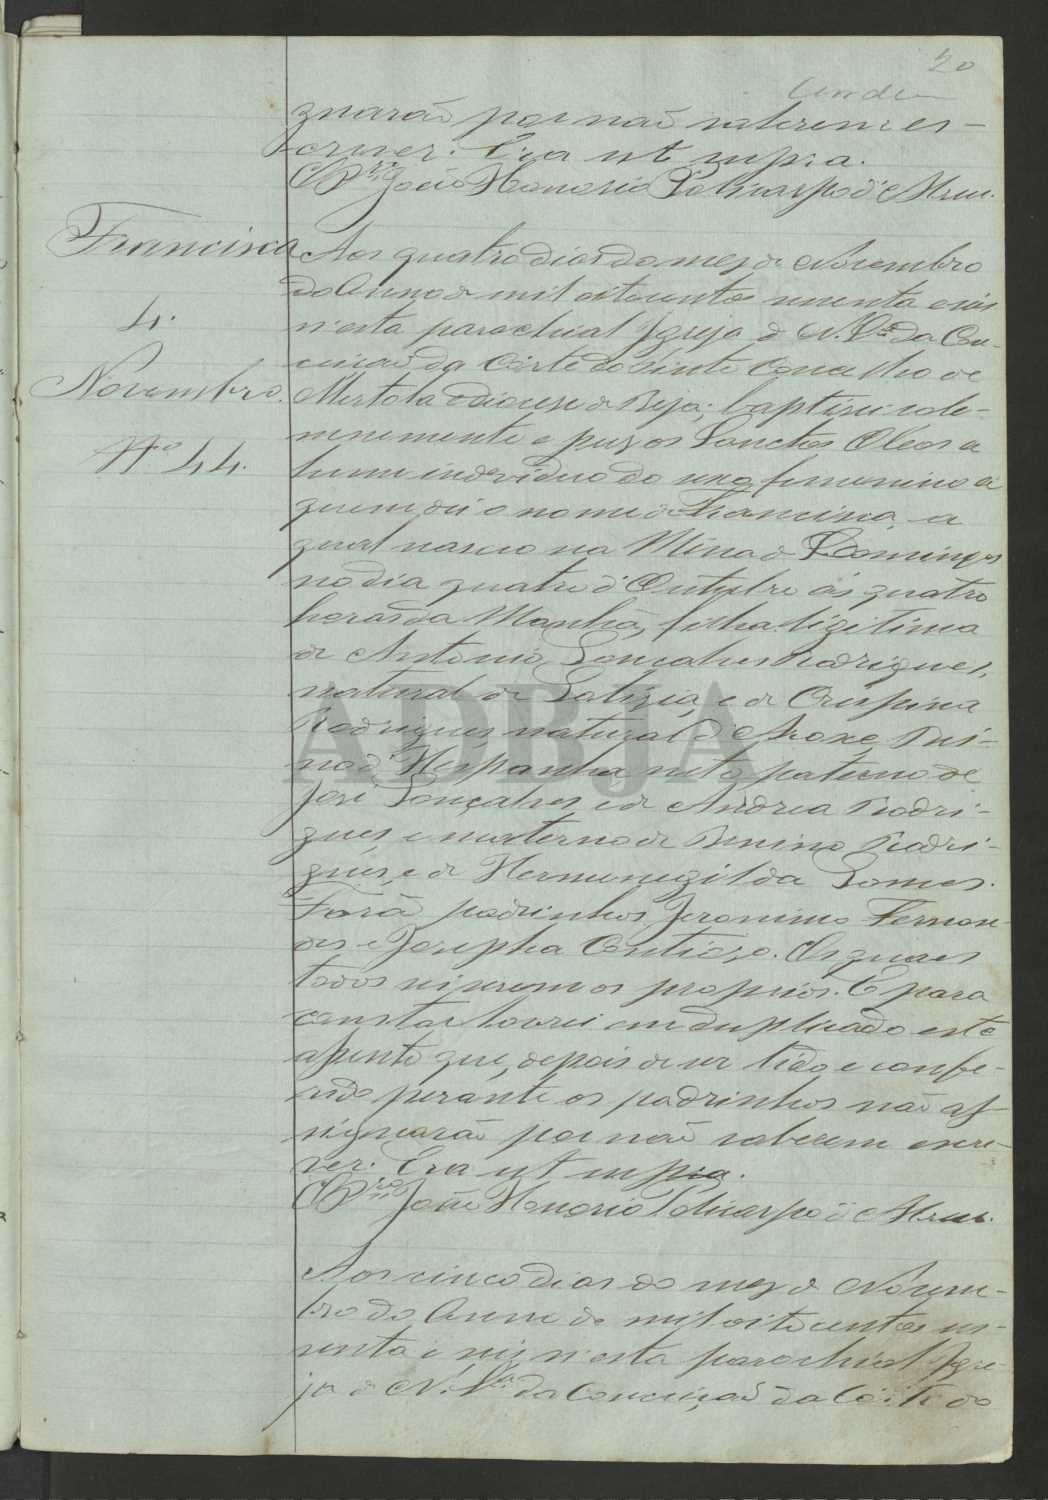 20
gnarão por não saberem es-
crever. Era ut supra.
O P.or João Honorio Policarpo d'
Francisca
4.
Novembro.
Nº 44.
Aos quatro dias do mez de Novembro
do Anno de mil oitocentos secenta e seis
n'esta parochial Igreja de N. Sr.ª da Con-
ceição da Corte do Pinto Concelho de
Mertola e diocese de Beja; baptisei sole-
mnemente e puz os Sanctos Oleos a
hum individuo do sexo femenino a
quem dei o nome de Francisca, a
qual nasceo na Mina de S. Domingos
no dia quatro d'Outubro ás quatro
horas da Manhã, filha legitima
de Antonio Gonçalves Rodrigues,
natural de Galiza, e de Crispina
Rodrigues natural d'Aroxe, Rei-
no d'Hespanha, neto paterno de
José Gonçalves, e de Andrea Rodri-
gues, e materno de Benino Rodri-
gues, e de Hermenegilda Gomes.
Forão padrinhos Jeronimo Fernan-
des e Josepha Os quaes
todos sei serem os proprios. E para
constar lavrei em duplicado este
assento que, depois de ser lido e confe-
rido perante os padrinhos não as-
signarão por não saberem escre-
ver. Era ut supra.
O P.or João Honorio Policarpo d'
Aos cinco dias do mez de Novem-
bro do Anno de mil oitocentos se-
centa e seis n'esta parochial Igre-
ja de N. Sr.ª da Conceição da Corte do
ADBJA